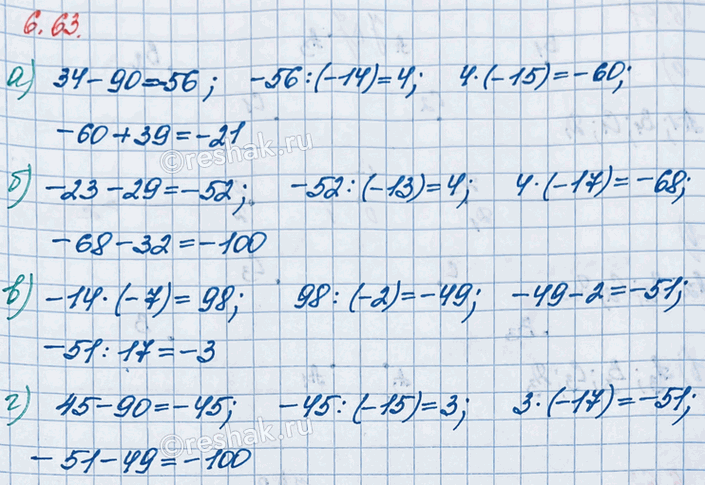 6.63.
а) 34-90=-56; -56:(-14)=4; 4·(-15)=-60;
-60+39=-21
©reshak.ru
б) -23-29=-52; -52:(-13)=4; 4·(-17)=-68;
-68-32=-100
в) -14·(-7)=98; 98:(-2)=-49; -49-2=-51;
-51:17=-3
г) 45-90=-45; -45:(-15)=3; 3·(-17)=-51;
©reshak.ru
-51-49=-100